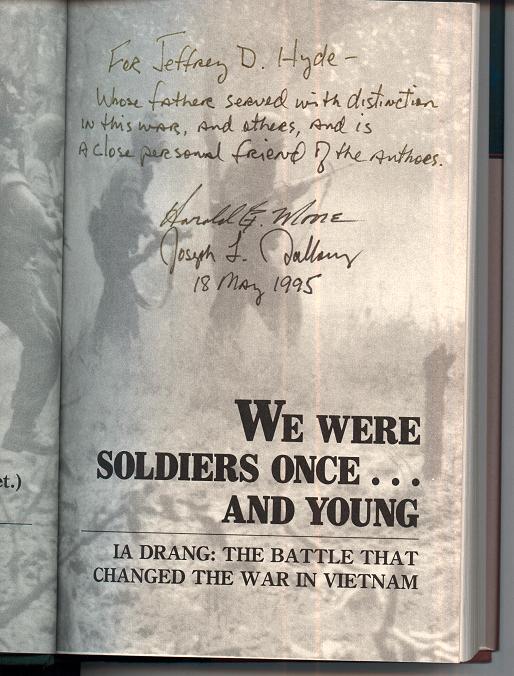 For Jeffrey D. Hyde -
Whose father served with distinction
in this war, and others, and is
a close personal friend of the authors.
Harold G. Moore
Joseph L. Galloway
18 May 1995
et.)
WE WERE
SOLDIERS ONCE . . .
AND YOUNG
IA DRANG: THE BATTLE THAT
CHANGED THE WAR IN VIETNAM